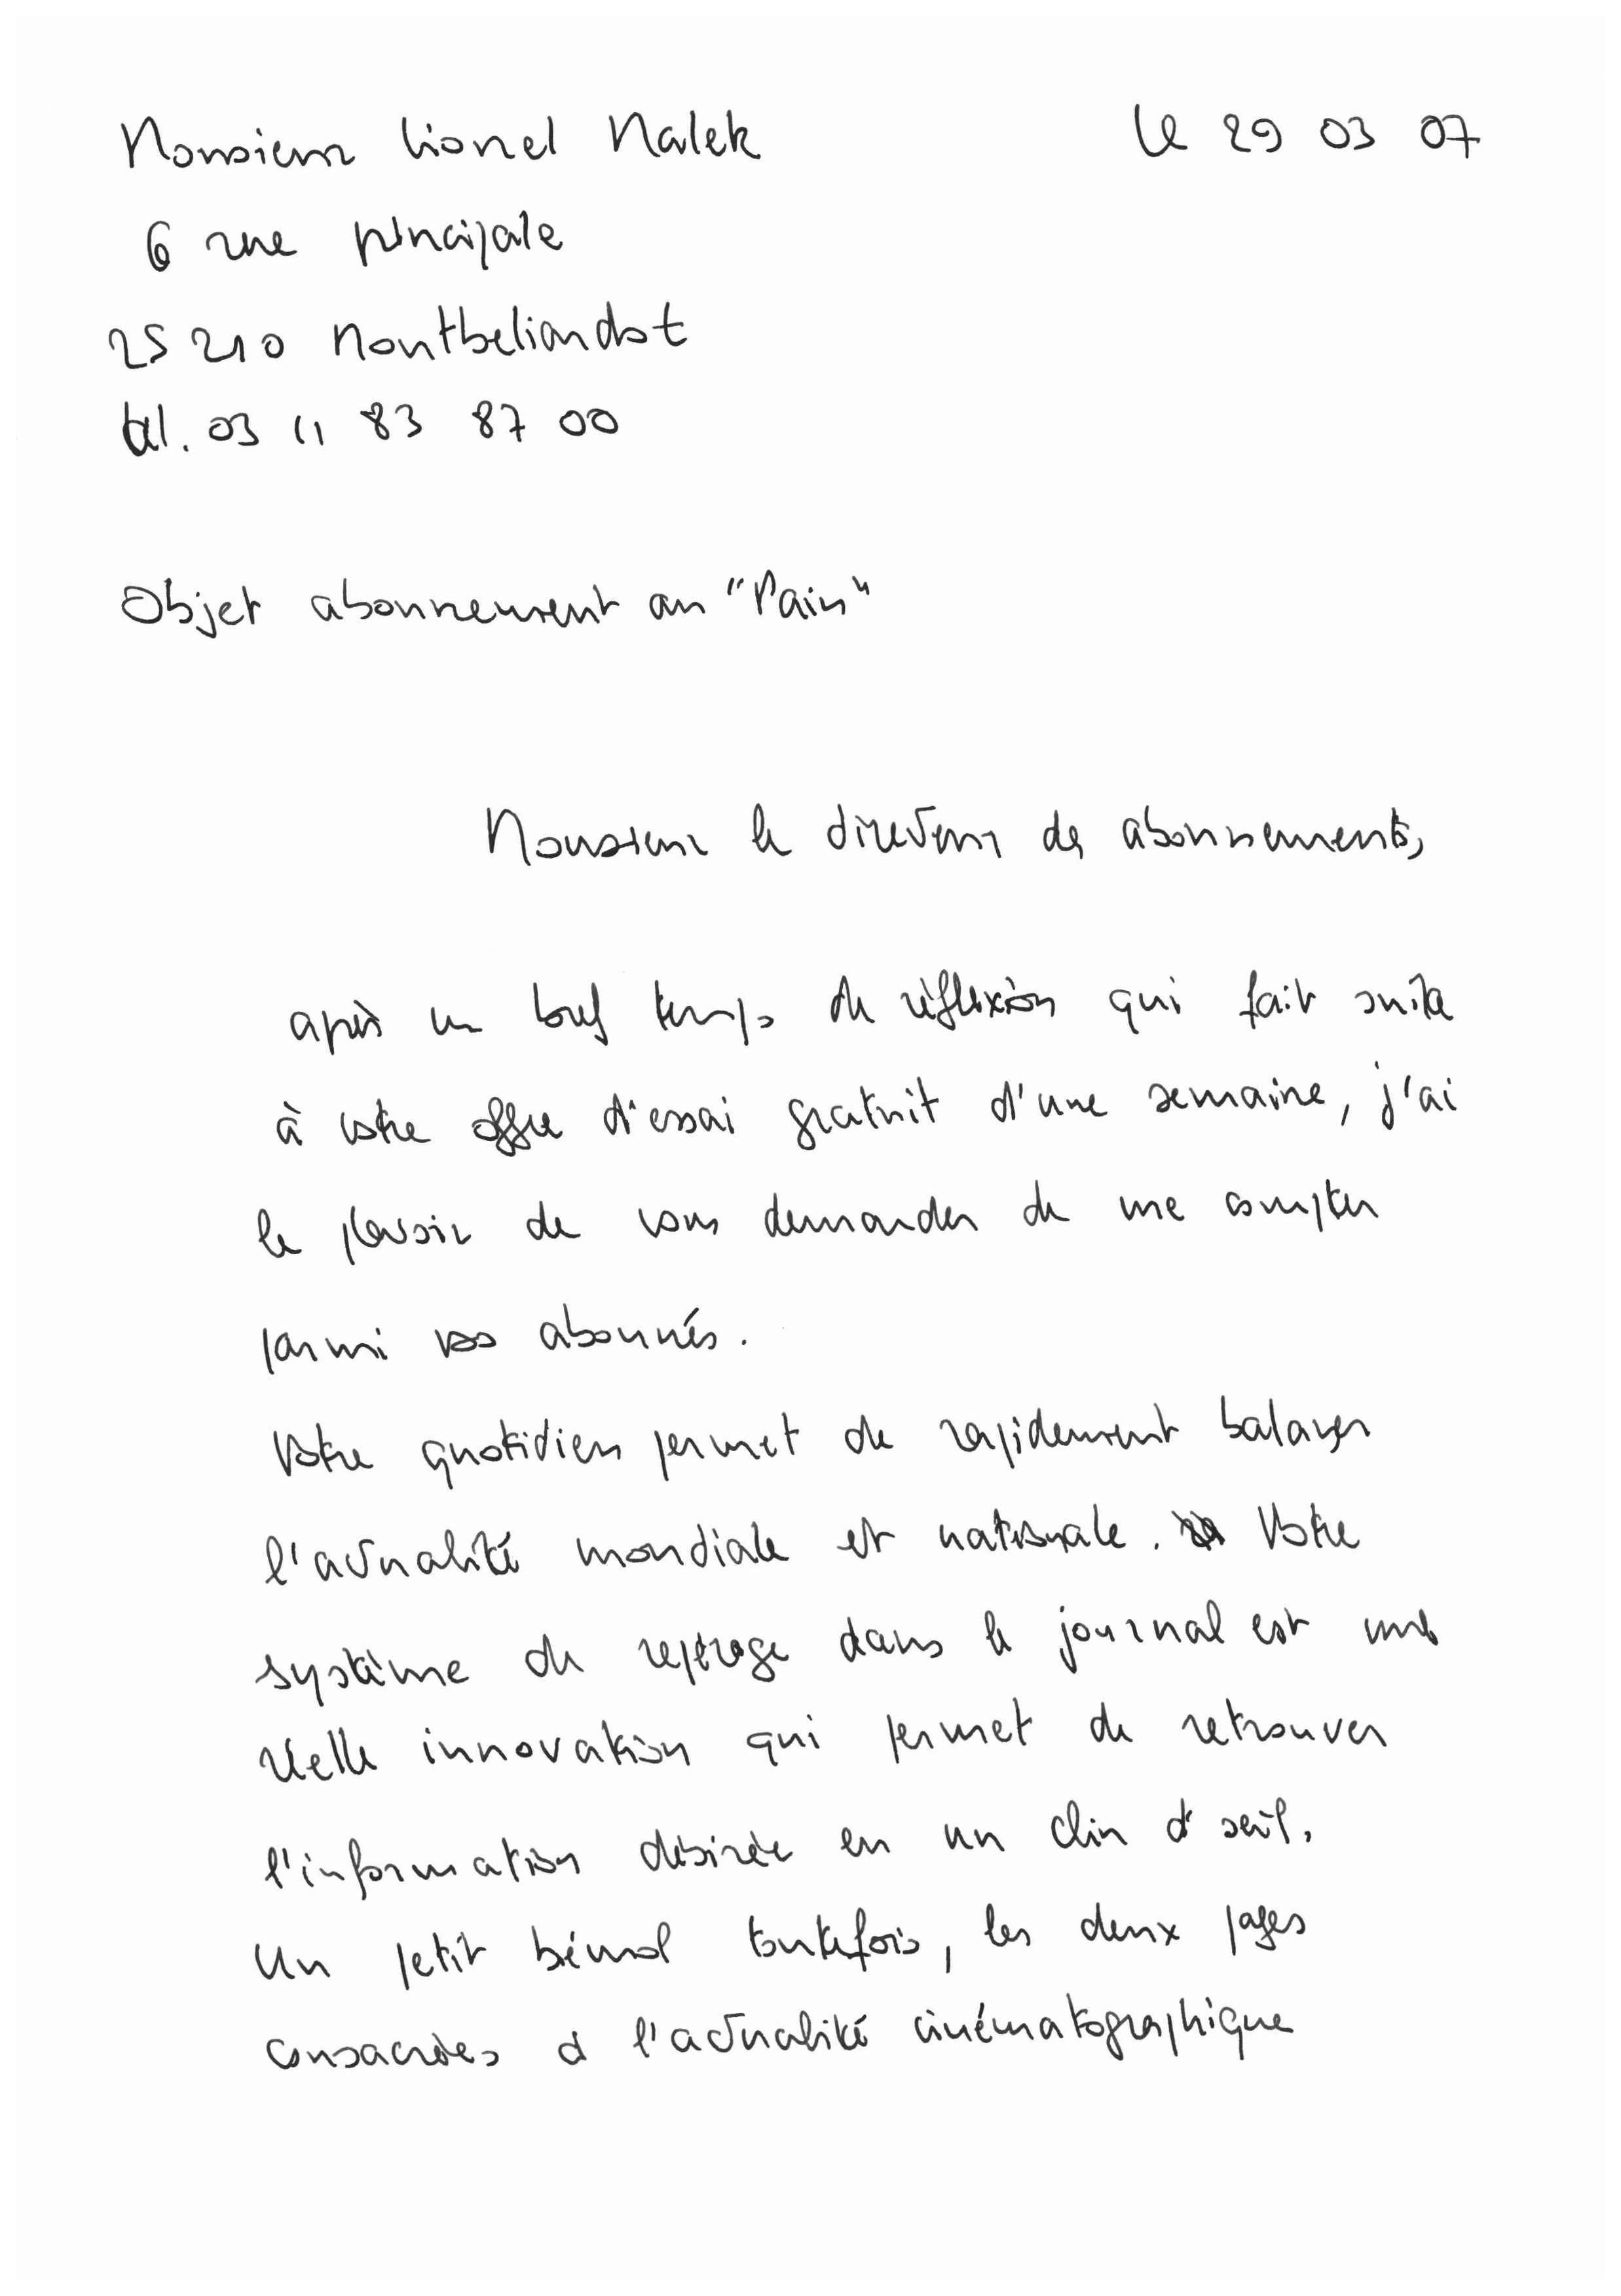 Monsieur Lionel Malek
le 29 03 07
6 rue principale
25 210 Montbeliardot
tél. 03 11 83 87 00
Objet abonnement au "Pain"
Monsieur le directeur des abonnements,
après un bref temps de réflexion qui fait suite
à votre offre d'essai gratuit d'une semaine, j'ai
le plaisir de vous demander de me compter
parmi vos abonnés.
Votre quotidien permet de rapidement balayer
l'actualité mondiale et nationale. Votre
système de repérage dans le journal est une
réelle innovation qui permet de retrouver
l'information désirée en un clin d'oeil.
Un petit bémol toutefois, les deux pages
consacrées à l'actualité cinématographique